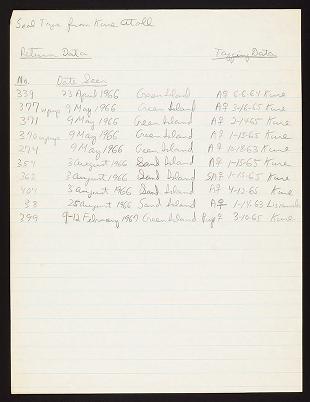 Seal Tags from Kure Atoll
Return Data Tagging Data
No. Date Seen
339 23 April 1966 Green Island A♀ 6-6-64 Kure
377 w/pup 9 May 1966 Green Island A♀ 3-16-65 Kure
371 9 May 1966 Green Island A♀ 2-14-65 Kure
370 w/pup 9 May 1966 Green Island A♀ 1-15-65 Kure
274 9 May 1966 Green Island A♀ 10-18-63 Kure
354 3 August 1966 Sand Island A♀ 1-15-65 Kure
362 3 August 1966 Sand Island SA♀ 1-15-65 Kure
404 3 August 1966 Sand Island A♀ 4-12-65 Kure
38 28 August 1966 Sand Island A♀ 1-14-63 Lisianski
399 9-12 February 1967 Green Island Pup♀ 3-10-65 Kure